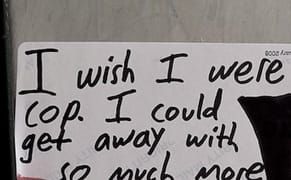 I wish I were
cop. I could
get away with
so much more